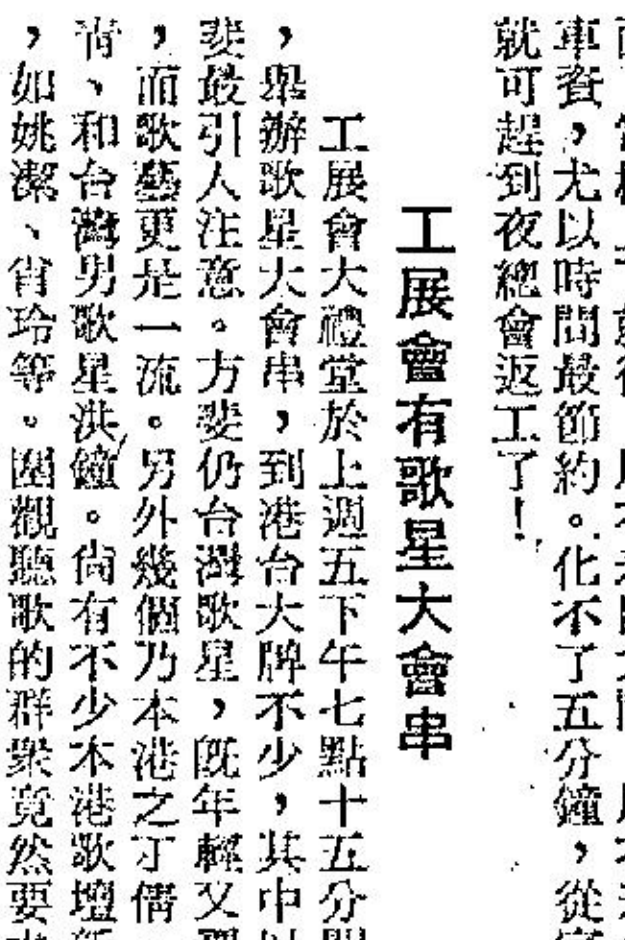 車資，尤以時間最節約。化不了五分鐘，從
就可趕到夜總會返工了！
工展會有歌星大會串
工展會大禮堂於上週五下午七點十五分
，舉辦歌星大會串，到港台大牌不少，其中
斐最引人注意。方斐仍台灣歌星，旣年輕又
，而歌藝更是一流。另外幾個乃本港之
、和台灣男歌星洪鐘。尙有不少本港歌壇
，如姚潔、甯玲等。圍觀聽歌的群衆竟然要